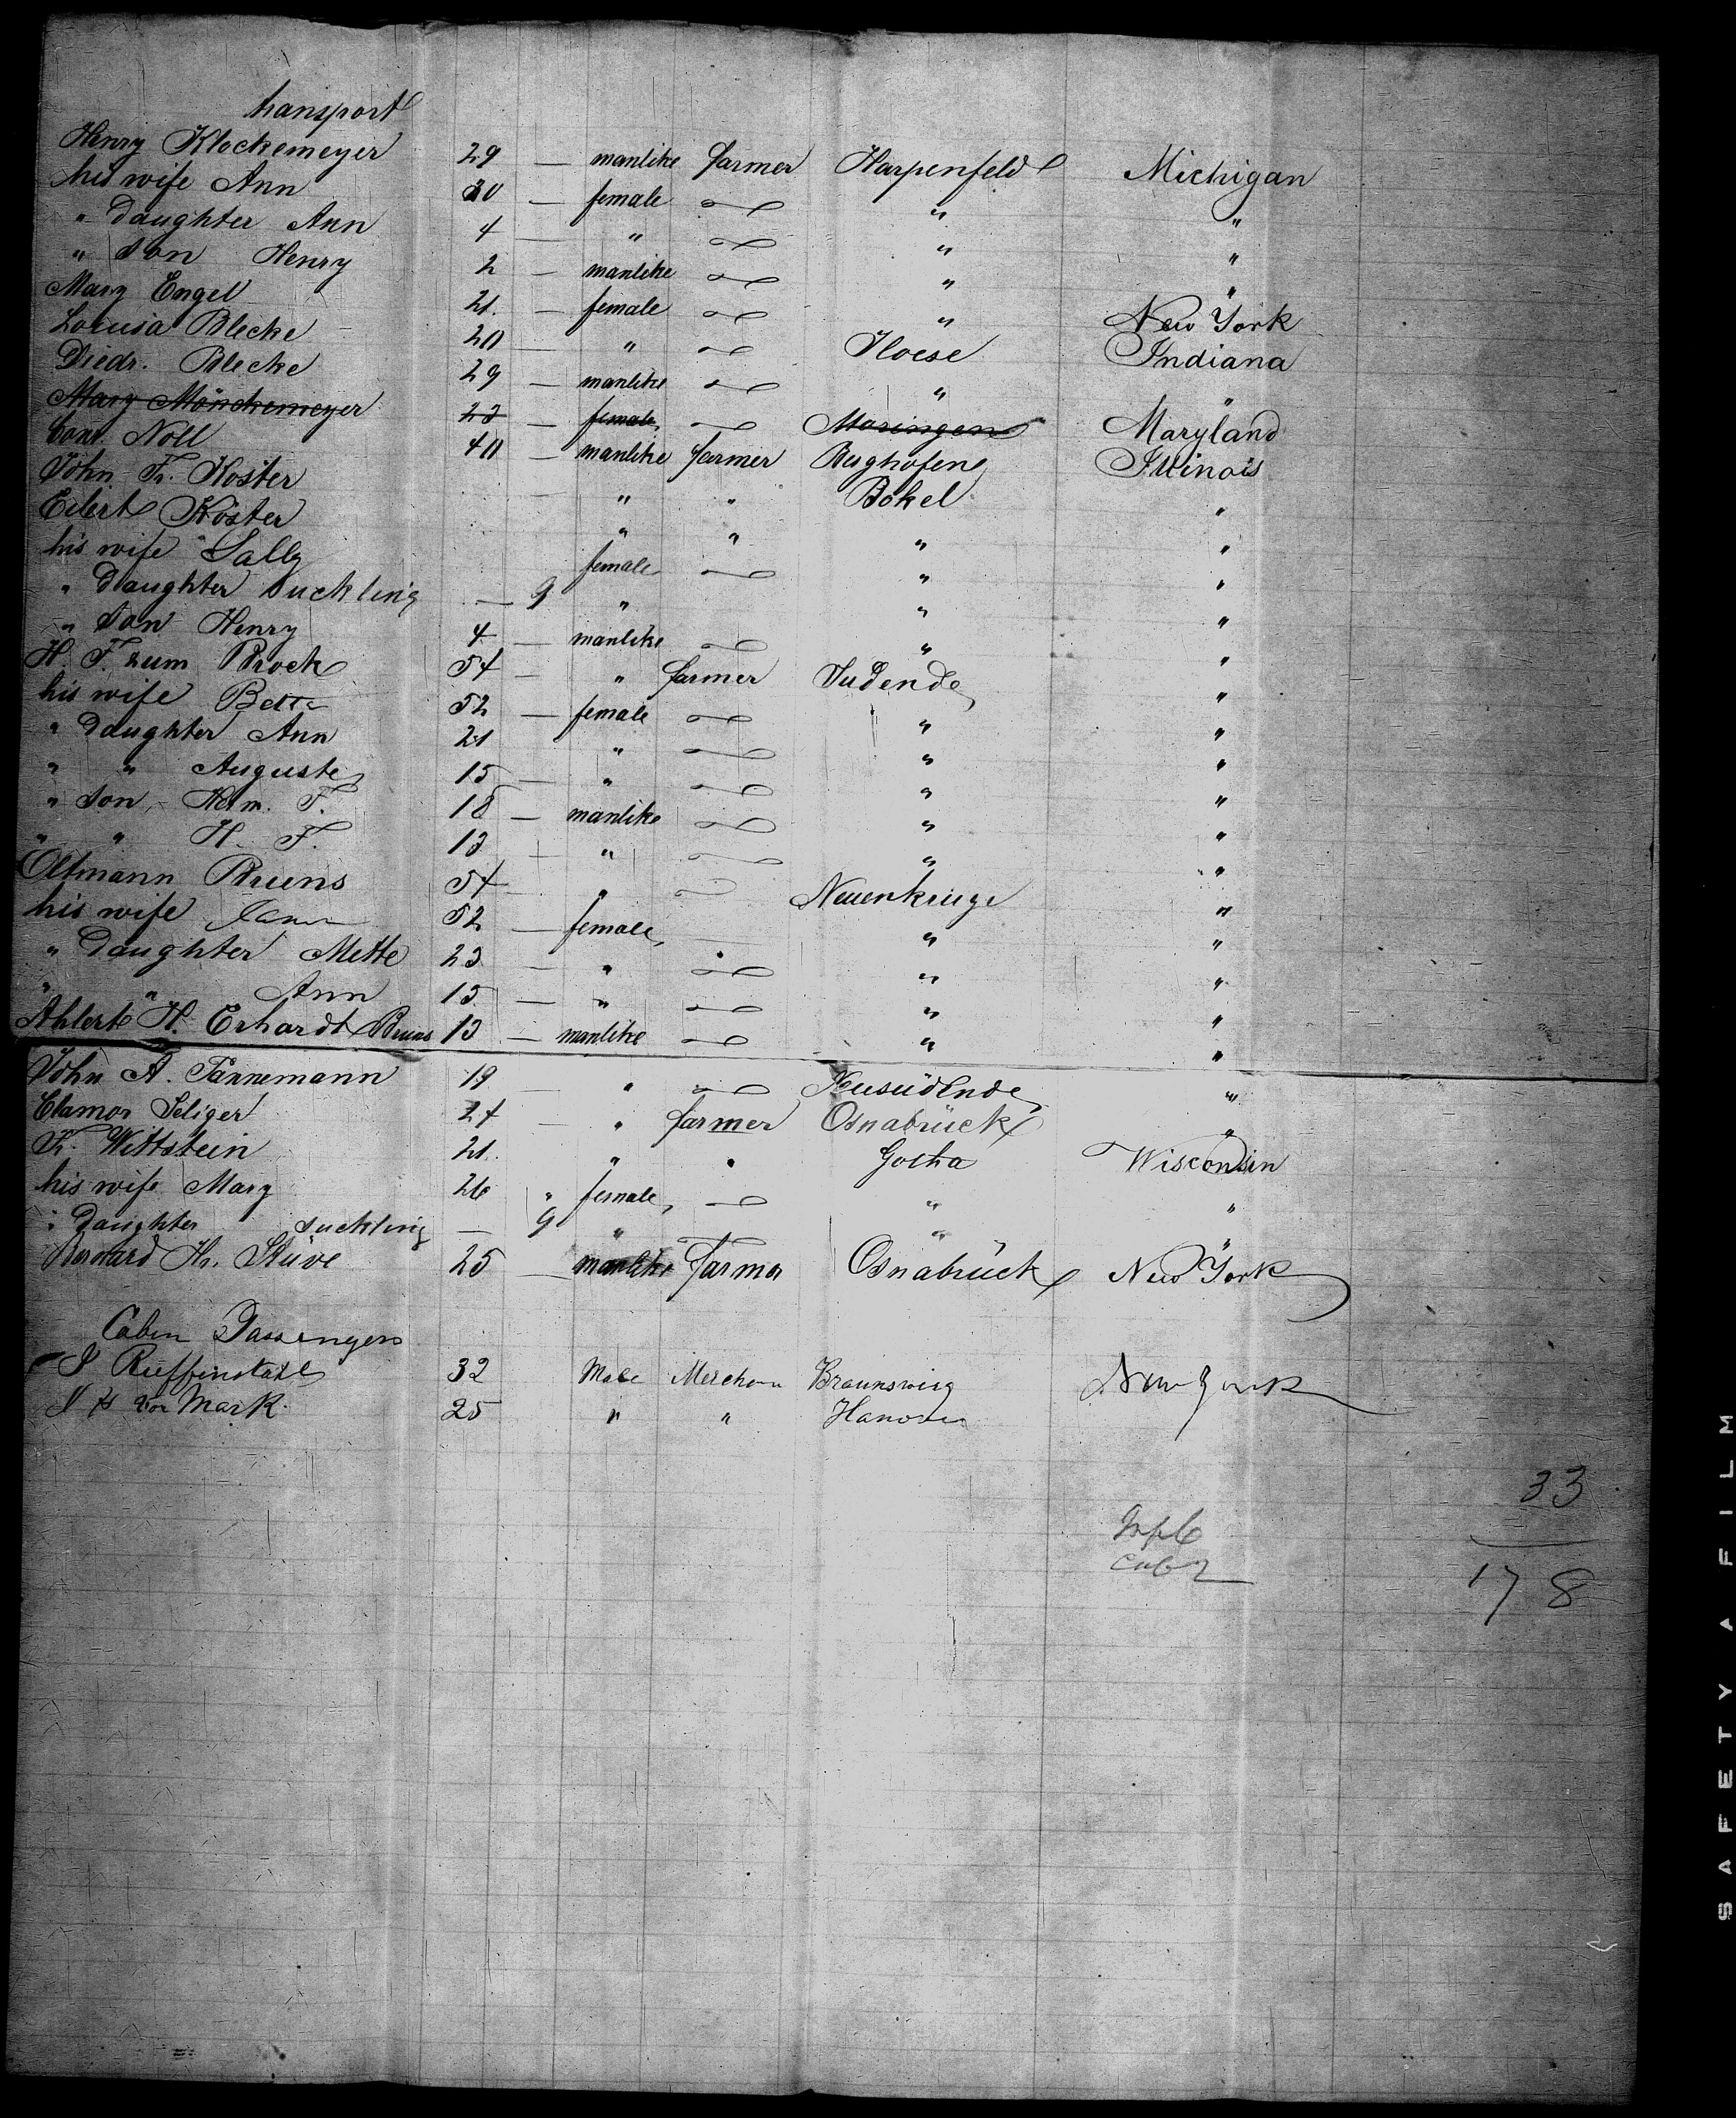 transport
Henry Klockemeyer 29 — manlike farmer Harpenfeld Michigan
his wife Ann 30 — female " "
" daughter Ann 4 — " " "
" son Henry 2 — manlike " "
Mary Engel 21. — female " New York
Louisa Blecke 20 — " Iloese Indiana
Diedr. Blecke 29 — manlike " "
Mary Mönckemeyer 23 — female Masingen Maryland
Conr. Noll 40 — manlike farmer Berghofen Illinois
John Fr. Koster — " " Bokel "
Eilert Köster " " " "
his wife Sally female " "
" daughter suckling — 9 " " "
" son Henry 4 — manlike " "
H. F. zum Brock 54 — " farmer Sudende "
his wife 52 — female " "
" daughter Ann 21 " " "
" " Auguste 15 — " " "
" son, F. 18 — manlike " "
" " H. F. 13 — " " "
Oltmann Bruns 54 " Neuenkruge "
his wife 52 — female, " "
" daughter Mette 23 — " " "
" " Ann 15 — " " "
Ahlert H. Erhardt Bruns 13 — manlike " "
John A. Tännemann 19 — " Neusüdende "
Clamor Seliger 24 — " farmer Osnabrück "
Fr. Wittstein 21. " " Gotha Wisconsin
his wife Mary 26 " female, " "
" daughter suckling — 9 " " "
Bernard Hr. Stüve 25 — manlike farmer Osnabrück New York
Cabin Passengers
J Rieffenstahl 32 Male Merchan Braunsweig New York
J H von Mark. 25 " " Hanover
33
178
SAFETY A FILM